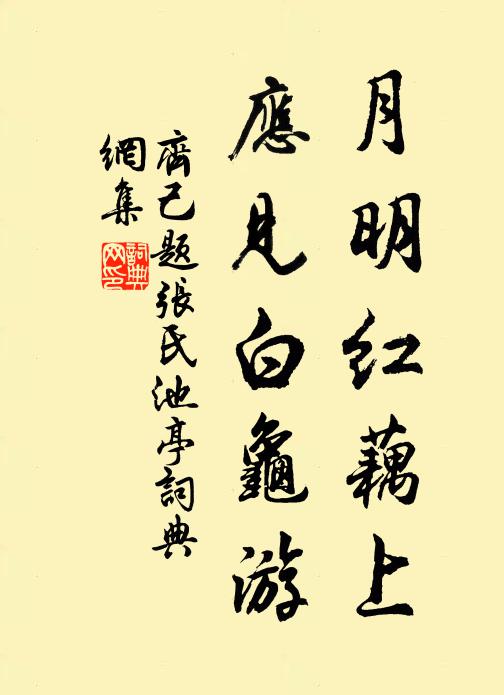 月明红藕上
應見白龜游
齊己题張氏池亭詞典
網集
詞典
网印